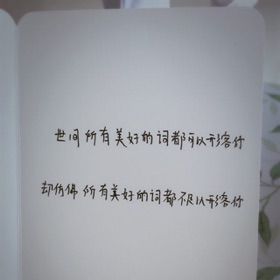 世间所有美好的词都可以形容你
却仿佛所有美好的词都不足以形容你